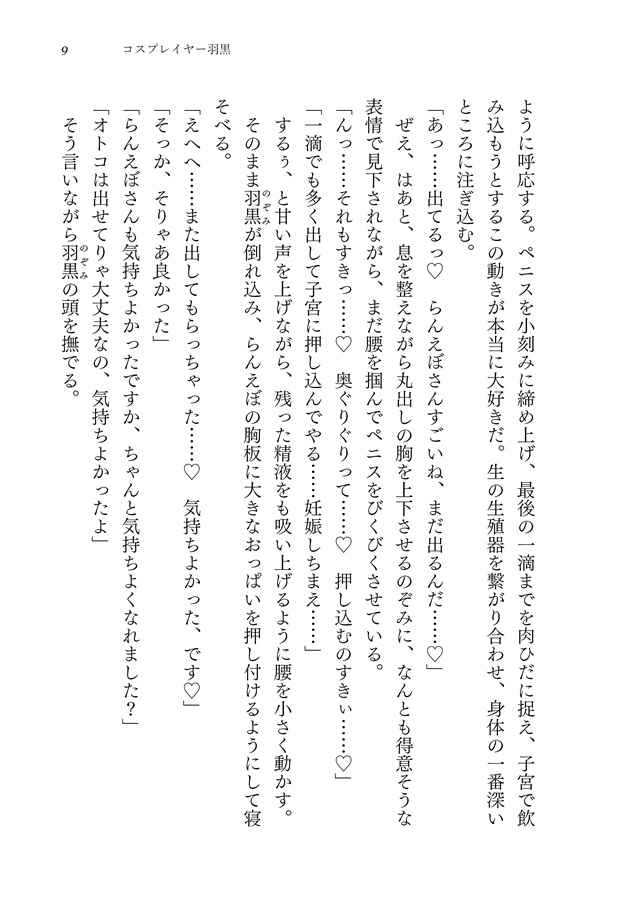 9
コスプレイヤー羽黒
ように呼応する。ペニスを小刻みに締め上げ、最後の一滴までを肉ひだに捉え、子宮で飲
み込もうとするこの動きが本当に大好きだ。生の生殖器を繋がり合わせ、身体の一番深い
ところに注ぎ込む。
「あっ……出てるっ♡　らんえぼさんすごいね、まだ出るんだ……♡」
ぜえ、はあと、息を整えながら丸出しの胸を上下させるのぞみに、なんとも得意そうな
表情で見下されながら、まだ腰を掴んでペニスをびくびくさせている。
「んっ……それもすきっ……♡　奥ぐりぐりって……♡　押し込むのすきぃ……♡」
「一滴でも多く出して子宮に押し込んでやる……妊娠しちまえ……」
するぅ、と甘い声を上げながら、残った精液をも吸い上げるように腰を小さく動かす。
そのまま羽黒のぞみが倒れ込み、らんえぼの胸板に大きなおっぱいを押し付けるようにして寝
そべる。
「えへへ……また出してもらっちゃった……♡　気持ちよかった、です♡」
「そっか、そりゃあ良かった」
「らんえぼさんも気持ちよかったですか、ちゃんと気持ちよくなれました？」
「オトコは出せてりゃ大丈夫なの、気持ちよかったよ」
そう言いながら羽黒のぞみの頭を撫でる。